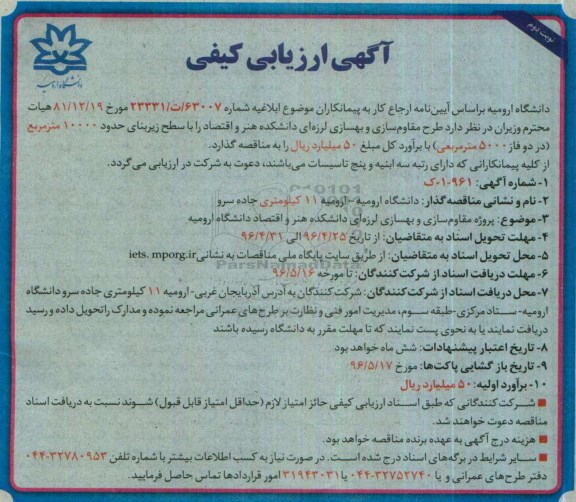 نوبت دوم
دانشگاه ارومیه
آگهی ارزیابی کیفی
دانشگاه ارومیه براساس آیین‌نامه ارجاع کار به پیمانکاران موضوع ابلاغیه شماره ۶۳۰۰۷/ت/۲۳۳۳۱ مورخ ۸۱/۱۲/۱۹ هیات
محترم وزیران در نظر دارد طرح مقاوم‌سازی و بهسازی لرزه‌ای دانشکده هنر و اقتصاد را با سطح زیربنای حدود ۱۰۰۰۰ مترمربع
(در دو فاز ۵۰۰۰ مترمربعی) با برآورد کل مبلغ ۵۰ میلیارد ریال را به مناقصه گذارد.
از کلیه پیمانکارانی که دارای رتبه سه ابنیه و پنج تاسیسات می‌باشند، دعوت به شرکت در ارزیابی می‌گردد.
۱- شماره آگهی: ۹۶۱-۱-ک
۲- نام و نشانی مناقصه‌گذار: دانشگاه ارومیه - ارومیه ۱۱ کیلومتری جاده سرو
۳- موضوع: پروژه مقاوم‌سازی و بهسازی لرزه‌ای دانشکده هنر و اقتصاد دانشگاه ارومیه
۴- مهلت تحویل اسناد به متقاضیان: از تاریخ ۹۶/۴/۲۵ الی ۹۶/۴/۳۱
۵- محل تحویل اسناد به متقاضیان: از طریق سایت پایگاه ملی مناقصات به نشانی iets. mporg.ir
۶- مهلت دریافت اسناد از شرکت‌کنندگان: تا مورخه ۹۶/۵/۱۶
۷- محل دریافت اسناد از شرکت‌کنندگان: شرکت‌کنندگان به آدرس آذربایجان غربی- ارومیه ۱۱ کیلومتری جاده سرو دانشگاه
ارومیه- ستاد مرکزی- طبقه سوم، مدیریت امور فنی و نظارت بر طرح‌های عمرانی مراجعه نموده و مدارک را تحویل داده و رسید
دریافت نمایند یا به نحوی پست نمایند که تا مهلت مقرر به دانشگاه رسیده باشند
۸- تاریخ اعتبار پیشنهادات: شش ماه خواهد بود.
۹- تاریخ باز گشایی پاکت‌ها: مورخ ۹۶/۵/۱۷
۱۰- برآورد اولیه: ۵۰ میلیارد ریال
■ شرکت‌کنندگانی که طبق اسناد ارزیابی کیفی حائز امتیاز لازم (حداقل امتیاز قابل قبول) شوند نسبت به دریافت اسناد
مناقصه دعوت خواهند شد.
■ هزینه درج آگهی به عهده برنده مناقصه خواهد بود.
■ سایر شرایط در برگه‌های اسناد درج شده است. در صورت نیاز به کسب اطلاعات بیشتر با شماره تلفن ۳۲۷۸۰۹۵۳-۰۴۴
دفتر طرح‌های عمرانی و یا ۳۲۷۵۲۷۴۰-۰۴۴ یا ۳۱۹۴۳۰۳۱ امور قراردادها تماس حاصل فرمایید.
ParsNamadData